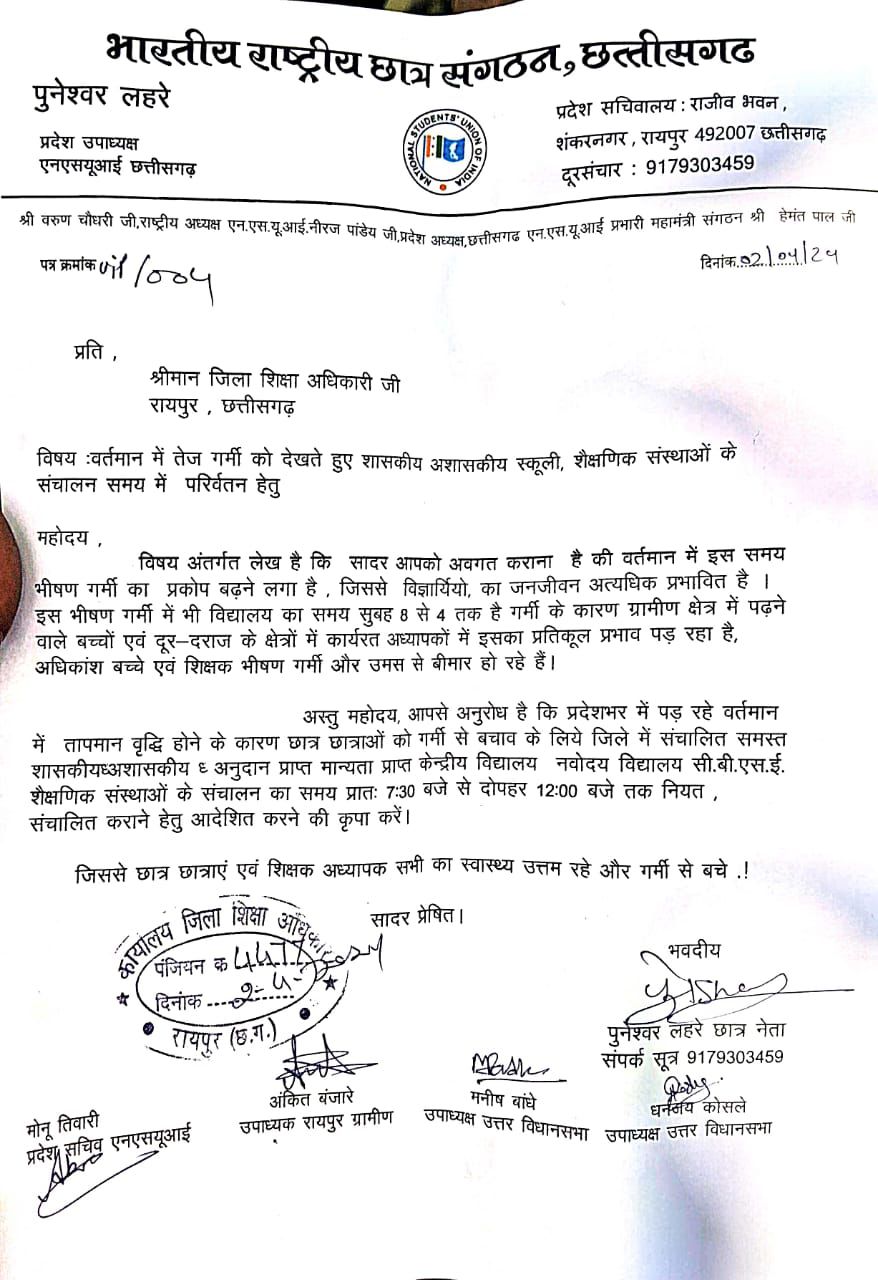 भारतीय राष्ट्रीय छात्र संगठन, छत्तीसगढ
पुनेश्वर लहरे
प्रदेश उपाध्यक्ष
एनएसयूआई छत्तीसगढ़
NATIONAL STUDENTS' UNION OF INDIA
प्रदेश सचिवालय : राजीव भवन,
शंकरनगर, रायपुर 492007 छत्तीसगढ़
दूरसंचार : 9179303459
श्री वरुण चौधरी जी,राष्ट्रीय अध्यक्ष एन.एस.यू.आई.नीरज पांडेय जी,प्रदेश अध्यक्ष,छत्तीसगढ एन.एस.यू.आई प्रभारी महामंत्री संगठन श्री हेमंत पाल जी
पत्र क्रमांक /004
दिनांक 02/04/24
प्रति ,
श्रीमान जिला शिक्षा अधिकारी जी
रायपुर , छत्तीसगढ़
विषय :वर्तमान में तेज गर्मी को देखते हुए शासकीय अशासकीय स्कूली, शैक्षणिक संस्थाओं के
संचालन समय में परिर्वतन हेतु
महोदय ,
विषय अंतर्गत लेख है कि सादर आपको अवगत कराना है की वर्तमान में इस समय
भीषण गर्मी का प्रकोप बढ़ने लगा है , जिससे विज्ञार्यियो, का जनजीवन अत्यधिक प्रभावित है ।
इस भीषण गर्मी में भी विद्यालय का समय सुबह 8 से 4 तक है गर्मी के कारण ग्रामीण क्षेत्र में पढ़ने
वाले बच्चों एवं दूर–दराज के क्षेत्रों में कार्यरत अध्यापकों में इसका प्रतिकूल प्रभाव पड़ रहा है,
अधिकांश बच्चे एवं शिक्षक भीषण गर्मी और उमस से बीमार हो रहे हैं।
अस्तु महोदय, आपसे अनुरोध है कि प्रदेशभर में पड़ रहे वर्तमान
में तापमान वृद्धि होने के कारण छात्र छात्राओं को गर्मी से बचाव के लिये जिले में संचालित समस्त
शासकीयध्अशासकीय ध् अनुदान प्राप्त मान्यता प्राप्त केन्द्रीय विद्यालय नवोदय विद्यालय सी.बी.एस.ई.
शैक्षणिक संस्थाओं के संचालन का समय प्रातः 7:30 बजे से दोपहर 12:00 बजे तक नियत ,
संचालित कराने हेतु आदेशित करने की कृपा करें।
जिससे छात्र छात्राएं एवं शिक्षक अध्यापक सभी का स्वास्थ्य उत्तम रहे और गर्मी से बचे .!
सादर प्रेषित।
कार्यालय जिला शिक्षा अधिकारी
पंजियन क्र
दिनांक 2-4-
रायपुर (छ.ग.)
भवदीय
पुनेश्वर लहरे छात्र नेता
संपर्क सूत्र 9179303459
अंकित बंजारे
उपाध्यक रायपुर ग्रामीण
मनीष बांधे
उपाध्यक्ष उत्तर विधानसभा
धनंजय कोसले
उपाध्यक्ष उत्तर विधानसभा
मोनू तिवारी
प्रदेश सचिव एनएसयूआई